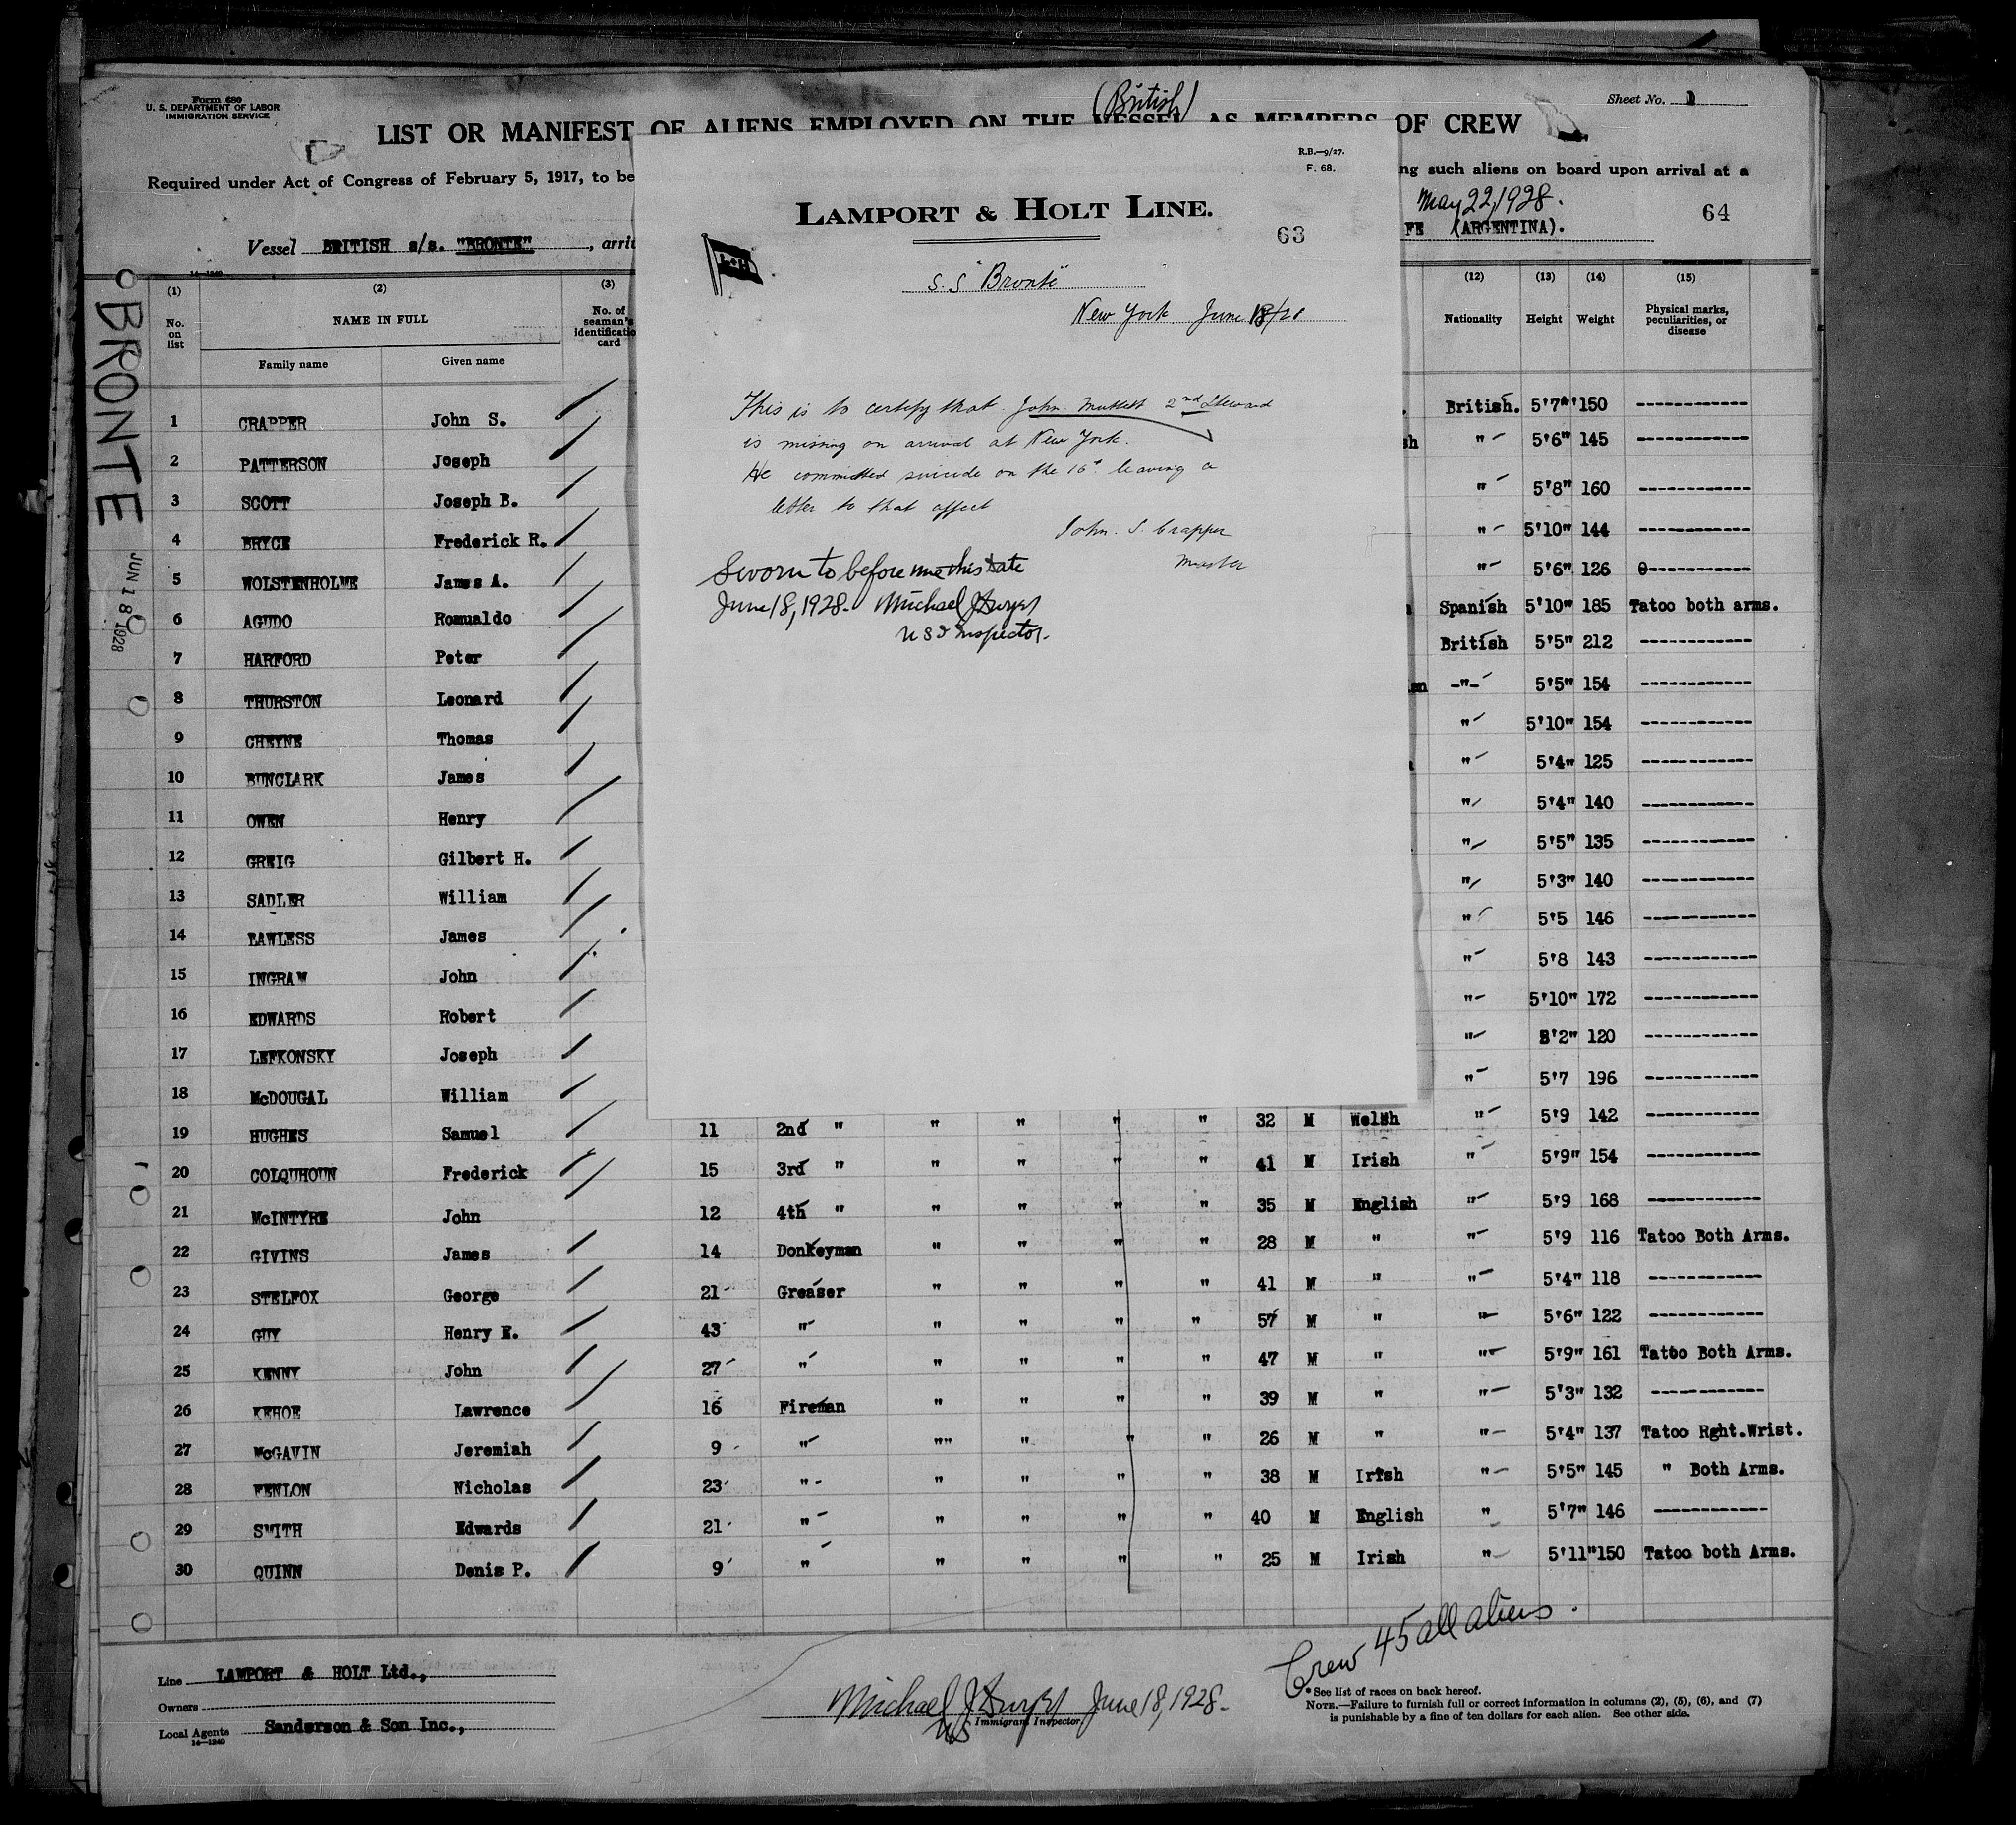 Form 680
U. S. DEPARTMENT OF LABOR
IMMIGRATION SERVICE
(British)
Sheet No. 1
LIST OR MANIFEST OF ALIENS EMPLOYED ON THE VESSEL AS MEMBERS OF CREW
Required under Act of Congress of February 5, 1917, to be
ng such aliens on board upon arrival at a
May 22, 1928.
64
Vessel BRITISH s/s. "BRONTE", arri
FE (ARGENTINA).
R.B.—9/27.
F. 68.
LAMPORT & HOLT LINE.
63
L+H
S.S "Bronte"
New York June 18/28
This is to certify that John 2nd Steward
is missing on arrival at New York.
He committed suicide on the 16th leaving a
letter to that affect
John. S. Crapper
Master
Sworn to before me this date
June 18, 1928. Michael J
U S I Inspector.
BRONTE
JUN 18 1928
14—1240
(1) (2) (3) (12) (13) (14) (15)
No. on list NAME IN FULL No. of seaman's identificatio card Nationality Height Weight Physical marks, peculiarities, or disease
Family name Given name
1 CRAPPER John S. British. 5'7" 150 ------------
2 PATTERSON Joseph sh " 5'6" 145 ------------
3 SCOTT Joseph B. " 5'8" 160 ------------
4 BRYCE Frederick R. " 5'10" 144 ------------
5 WOLSTENHOLME James A. " 5'6" 126 ------------
6 AGUDO Romualdo Spanish 5'10" 185 Tatoo both arms.
7 HARFORD Peter British 5'5" 212 ------------
8 THURSTON Leonard en -"- 5'5" 154 ------------
9 CHEYNE Thomas " 5'10" 154 ------------
10 BUNCLARK James " 5'4" 125 ------------
11 OWEN Henry " 5'4" 140 ------------
12 GREIG Gilbert H. " 5'5" 135 ------------
13 SADLER William " 5'3" 140 ------------
14 LAWLESS James " 5'5 146 ------------
15 INGRAM John " 5'8 143 ------------
16 EDWARDS Robert " 5'10" 172 ------------
17 LEFKONSKY Joseph " 5'2" 120 ------------
18 McDOUGAL William " 5'7 196 ------------
19 HUGHES Samuel 11 2nd " " " " " 32 M Welsh " 5'9 142 ------------
20 COLQUHOUN Frederick 15 3rd " " " " " 41 M Irish " 5'9" 154 ------------
21 McINTYRE John 12 4th " " " " " 35 M English " 5'9 168 ------------
22 GIVINS James 14 Donkeyman " " " " 28 M " " 5'9 116 Tatoo Both Arms.
23 STELFOX George 21 Greaser " " " " 41 M " " 5'4" 118 ------------
24 GUY Henry E. 43 " " " " " 57 M " " 5'6" 122 ------------
25 KENNY John 27 " " " " " 47 M " " 5'9" 161 Tatoo Both Arms.
26 KEHOE Lawrence 16 Fireman " " " " 39 M " " 5'3" 132 ------------
27 McGAVIN Jeremiah 9 " "" " " " 26 M " " 5'4" 137 Tatoo Rght.Wrist.
28 FENLON Nicholas 23 " " " " " 38 M Irish " 5'5" 145 " Both Arms.
29 SMITH Edwards 21 " " " " " 40 M English " 5'7" 146 ------------
30 QUINN Denis P. 9 " " " " " 25 M Irish " 5'11" 150 Tatoo both Arms.
Crew 45 all aliens.
Line LAMPORT & HOLT Ltd.,
Owners
Local Agents Sanderson & Son Inc.,
14—1240
Michael J June 18, 1928.
US Immigrant Inspector
* See list of races on back hereof.
NOTE.—Failure to furnish full or correct information in columns (2), (5), (6), and (7)
is punishable by a fine of ten dollars for each alien. See other side.